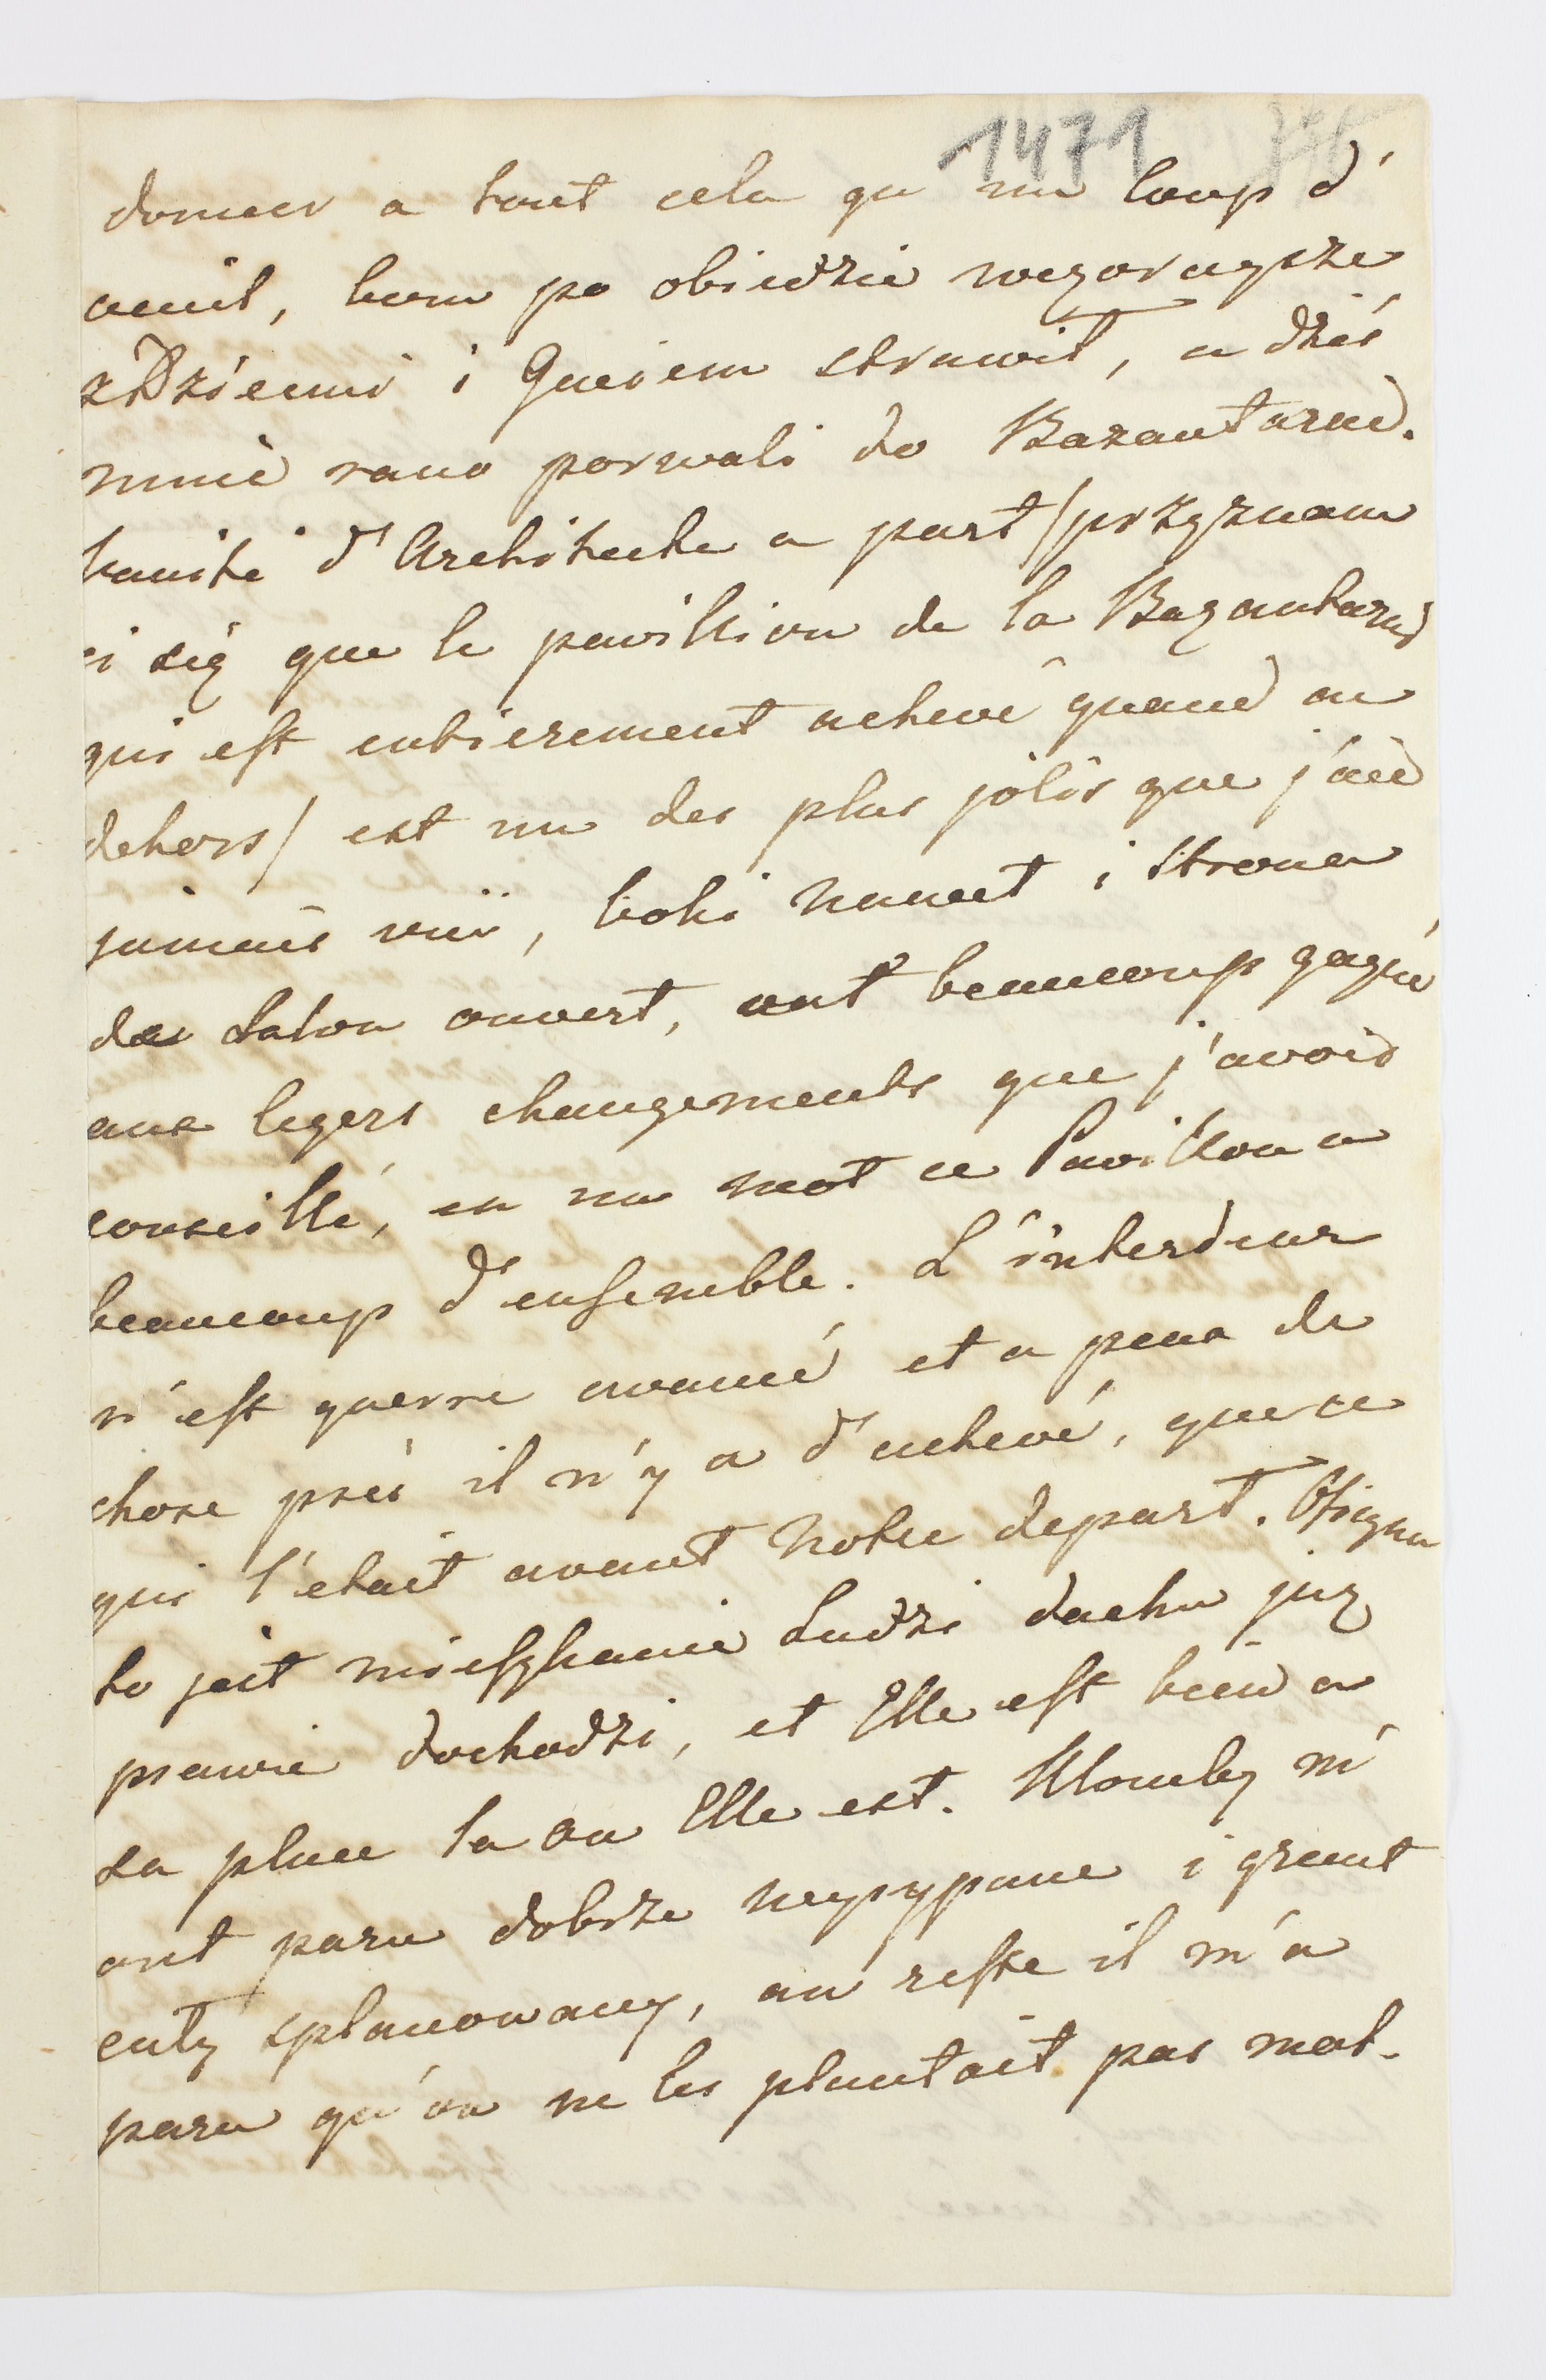 1471
donner a tout cela qu un Coup d'
oeuil, bom po obiedzie wczoraysze
z Dziecmi i Gueiem strawił, a dziś
mnie rano porwali do Bazantarni.
Vanité d'Architecte a part / przyznam
ci się que le pavillion de la Bazantarni
qui est entierement achevé quand au
dehors / est un des plus jolis que j'aie
jamais vuü, boki nawet i strona
du Salon ouvert, ont beaucoup gagné
aux legers changements que j'avois
conseillé, en un mot ce Pavillon a
beaucoup d'ensemble. L'interieur
n'est guerre avancé et a peux de
chose prés il n'y a d'achevé, que ce
qui l'etait avant notre depart. Oficyna
to jest mieszkanie Ludzi dachu juz
prawie dochodzi, et Elle est bien a
sa place la ou Elle est. Klomby m'
ont paru dobrze wysypane i grunt
cały splanowany, au reste il m'a
paru qu'on ne les plantait pas mal.